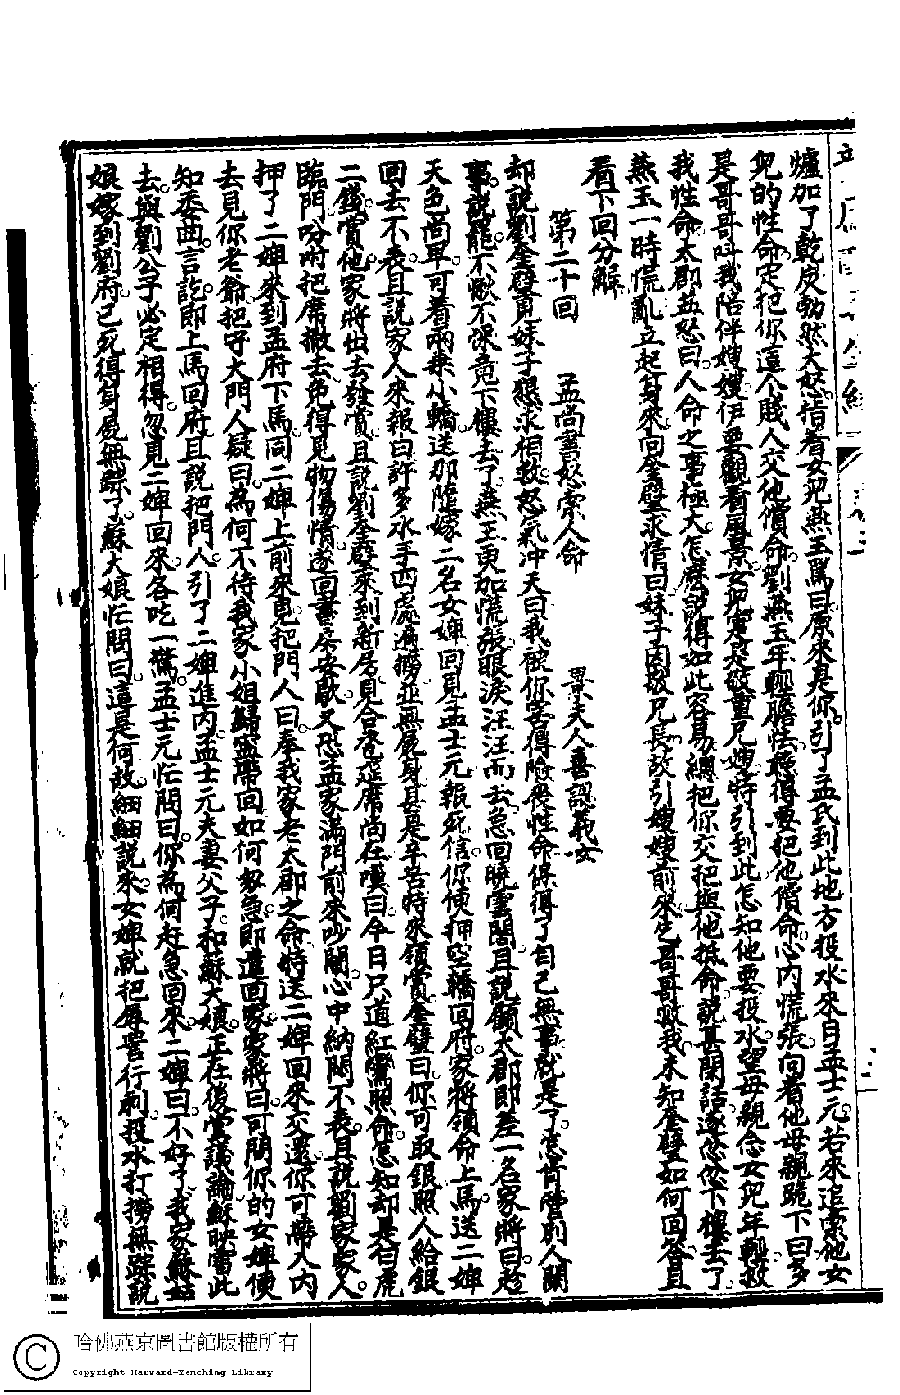 爐加了乾炭勃然大怒指着女兒燕玉罵曰原來是你引了孟氏到此地方投水來日孟士元若來追索他女
兒的性命定把你這个賤人交他償命劉燕玉年輕膽怯聽得要把他償命心內慌張向着他母親跪下曰多
是哥哥叫我陪伴嫂嫂伊要觀看風景女兒實是敬重兄嫂特引到此怎知他要投水望母親念女兒年輕救
我性命太郡益怒曰人命之事極大怎麼說得如此容易總把你交把與他抵命說甚閑話遂忿忿下樓去了
燕玉一時慌亂立起身來向奎璧求情曰妹子因敬兄長故引嫂嫂前來乞哥哥救我未知奎璧如何回答且
看下回分解
第二十回 孟尚書愁索人命 夫人喜認義女
却說劉奎璧見妹子懇求相救怒氣冲天曰我被你害得險喪性命保得了自己無事就是了怎肯管別人閑
事說罷不瞅不保竟下樓去了燕玉更加慌張眼淚汪汪而去急回曉雲閣且說顧太郡即差一名家將曰趁
天色尚早可着兩乘小轎送那隨嫁二名女婢回見孟士元報死信你便押空轎回府家將領命上馬送二婢
回去不表且說家人來報曰許多水手四處遍撈並無屍身甚是辛苦特來領賞奎璧曰你可取銀照人給銀
二錢賞他家將出去發賞且說劉奎璧來到新房見合巹筵席尚在嘆曰今日只道紅鸞照命怎知却是白虎
臨門吩咐把席撤去免得見物傷情遂回書房安歇又恐孟家滿門前來吵鬧心中納悶不表且說劉家家人
押了二婢來到孟府下馬同二婢上前來見把門人曰奉我家老太郡之命特送二婢回來交還你可帶入內
去見你老爺把守大門人疑曰為何不待我家小姐歸寧帶回如何匆急即遣回家家將曰可問你的女婢便
知委曲言訖即上馬回府且說把門人引了二婢進內孟士元夫妻父子和蘇大娘正在後堂議論蘇映雪此
去與劉公子必定相得忽見二婢回來各吃一驚孟士元忙問曰你為何赶急回來二婢曰不好了我家蘇姑
娘嫁到劉府已死得身屍無踪了蘇大娘忙問曰這是何故細細說來女婢就把辱罵行刺投水打撈無踪說
哈佛燕京圖書館版權所有
Copyright Harvard-Yenching Library